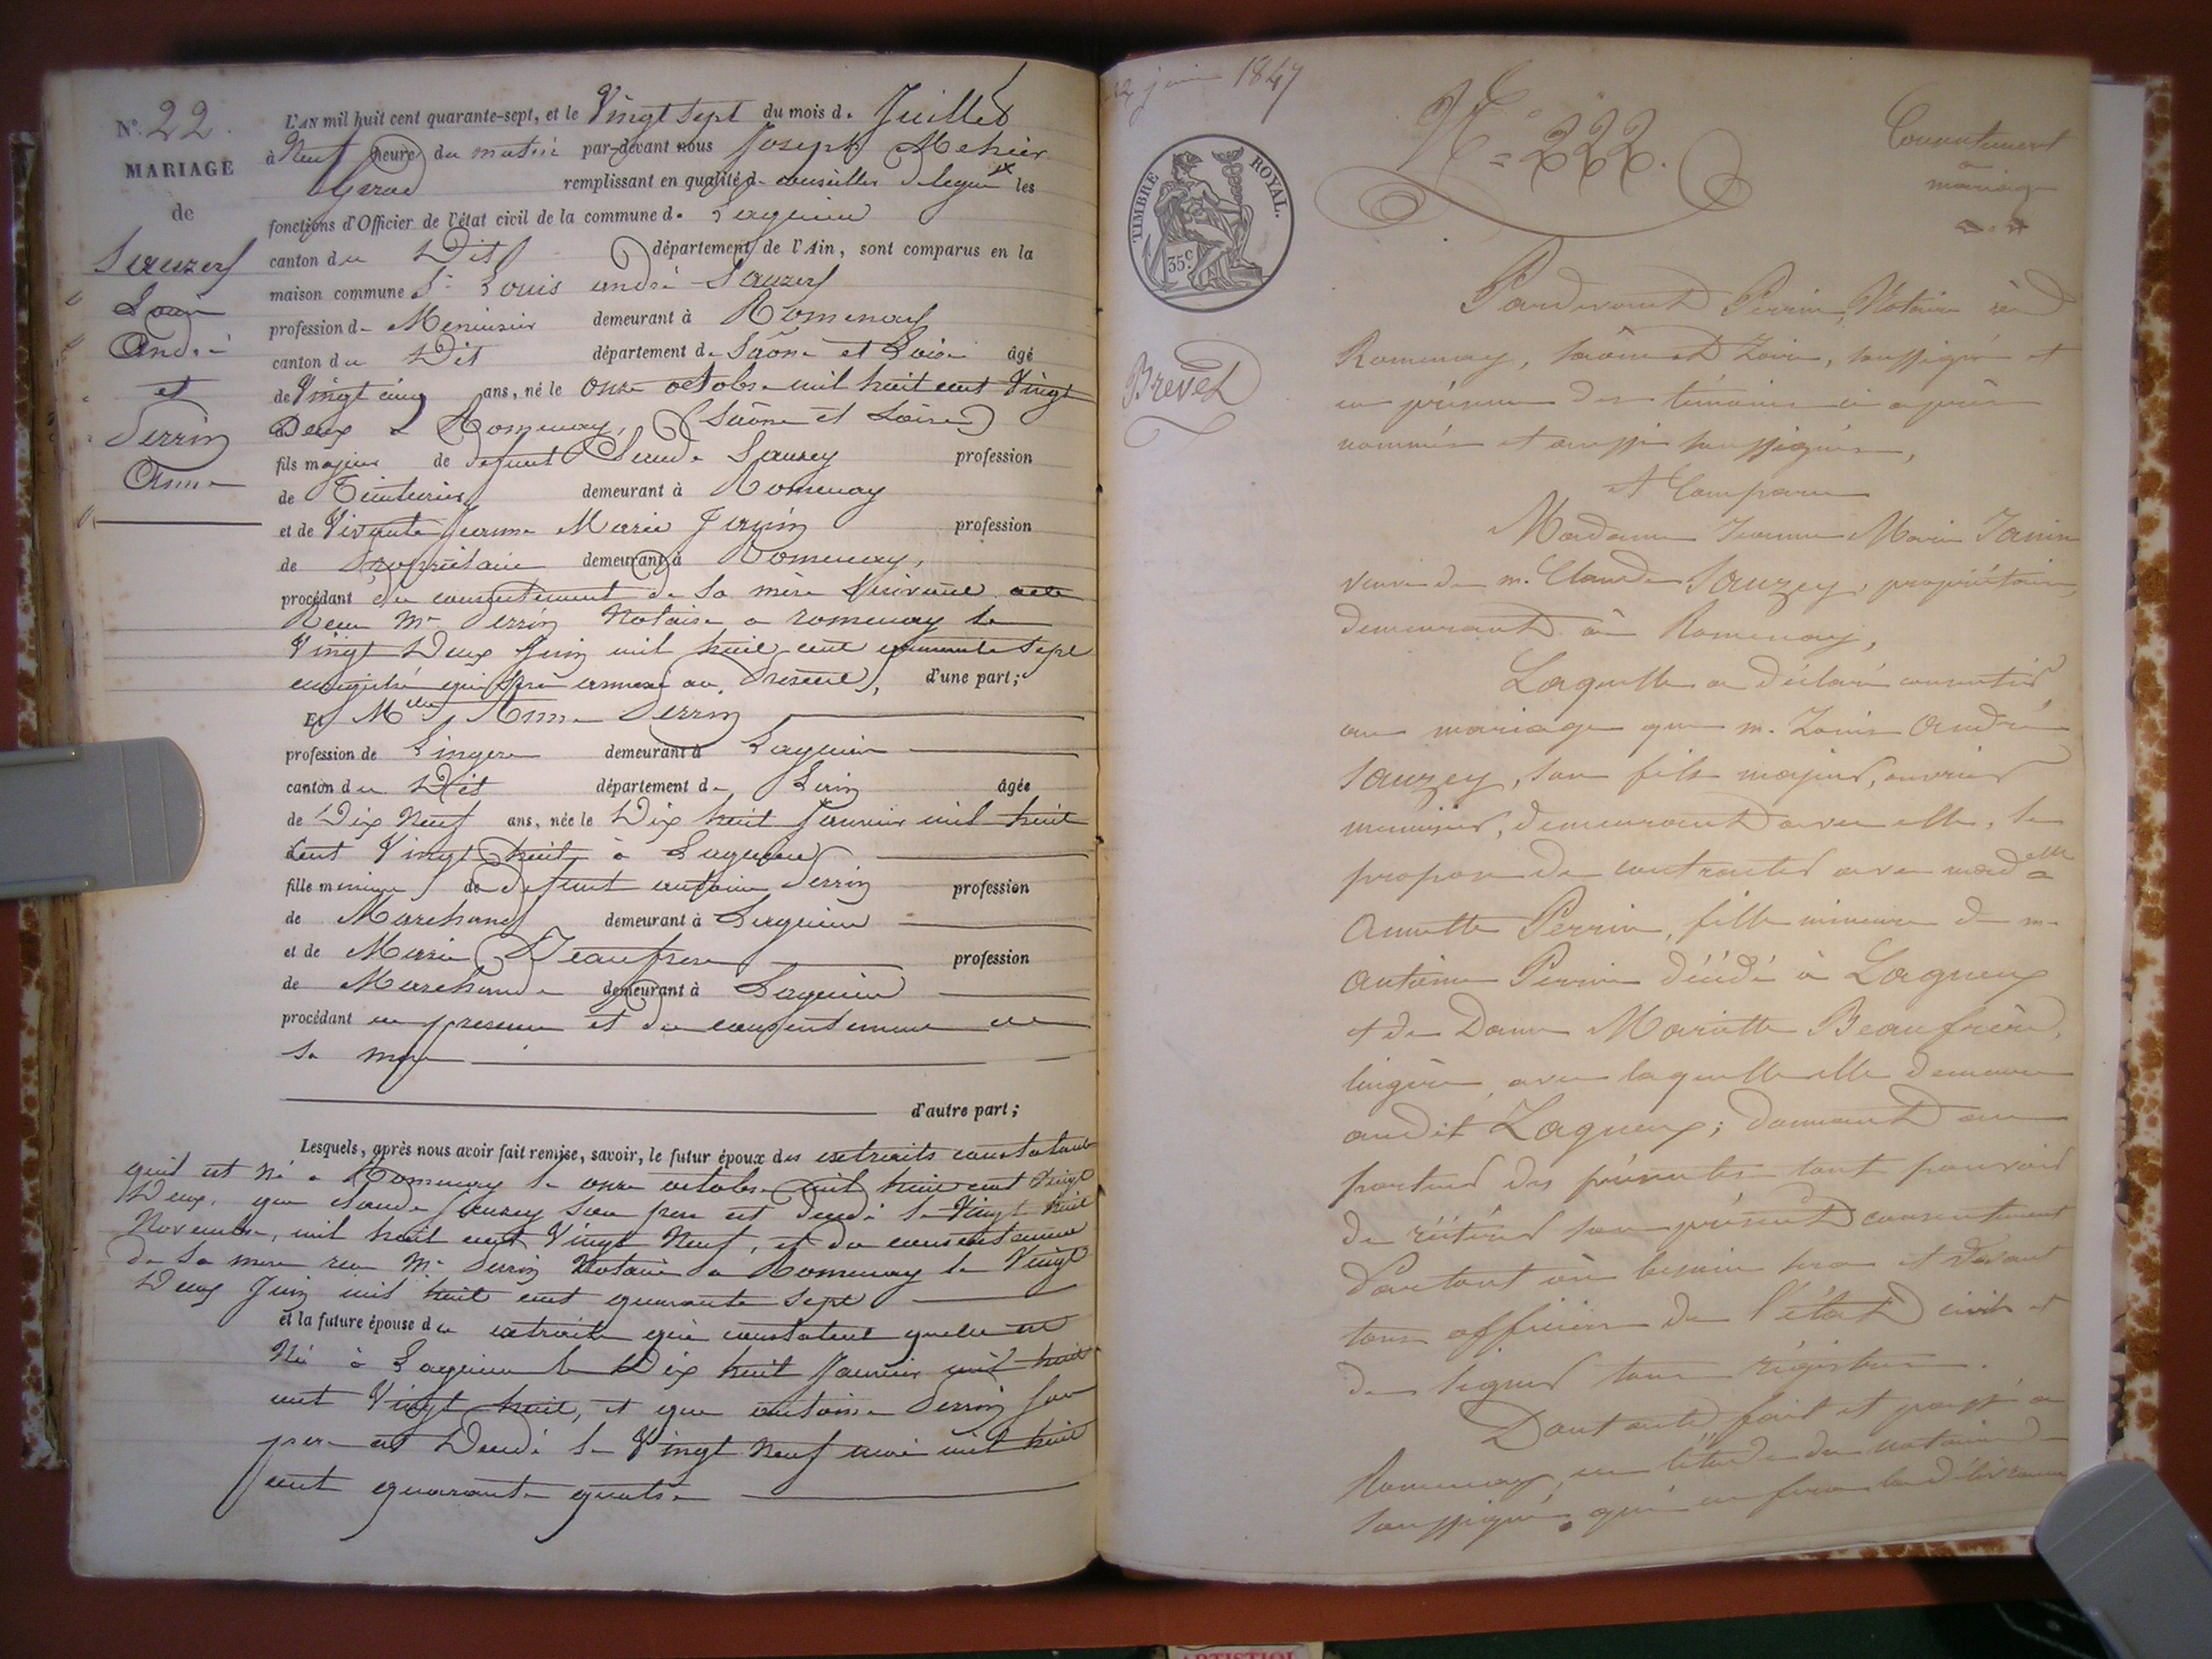 N° 22.
MARIAGE
de
Sauzey
Louis
André
et
Perrin
Anne
L'AN mil huit cent quarante-sept, et le Vingt Sept du mois de Juillet
à Neuf heure du matin par-devant nous Joseph Mehier
remplissant en qualité de conseiller les
fonctions d'Officier de l'état civil de la commune de Lagnieu
canton du Dit département de l'Ain, sont comparus en la
maison commune Sr Louis André Sauzey
profession de Menuisier demeurant à Romenay
canton du Dit département de Saône et Loire âgé
de Vingt cinq ans, né le onze octobre mil huit cent Vingt
Deux à Romenay, (Saône et Loire)
fils majeur de defunt Claude Sauzey profession
de Teinturier demeurant à Romenay
et de Vivante Jeanne Marie Janin profession
de Propriétaire demeurant à Romenay,
procédant du consentement de sa mère suivant acte
Reçu Me Perrin Notaire a romenay le
Vingt Deux Juin mil huit cent quarante Sept
enregistré qui sera annexé au present, d'une part;
Et Mlle Anne Perrin
profession de Lingere demeurant à Lagnieu
canton du Dit département de Lain âgée
de Dix Neuf ans, née le Dix huit Janvier mil huit
Cent Vingt huit à Lagnieu
fille mineure de defunt antoine Perrin profession
de Marchand demeurant à Lagnieu
et de Marie Beaufrere profession
de Marchande demeurant à Lagnieu
procédant en presence et du consentement de
sa mere
d'autre part;
Lesquels, après nous avoir fait remise, savoir, le futur époux des extraits constatant
quil est né a Romenay le onze octobre mil huit cent Vingt
Deux, que claude Sauzey son pere est decedé le Vingt huit
Novembre, mil huit cent Vingt Neuf, et du consentement
de sa mere reçu Me Perrin Notaire a Romenay le Vingt
Deux Juin mil huit cent quarante Sept
et la future épouse des extraits qui constatent quelle est
Née à Lagnieu le Dix huit Janvier mil huit
cent Vingt huit, et que antoine Perrin son
pere est Decedé le Vingt Neuf mai mil huit
cent quarante quatre
22 juin 1847
TIMBRE ROYAL.
35c
Brevet
N° 222.
Consentement
a
mariage
Pardevant Perrin, Notaire à
Romenay, Saône et Loire, soussigné et
en présence des témoins ci après
nommés et aussi soussignés,
A Comparu
Madame Jeanne Marie Janin
veuve de m. Claude Sauzey, propriétaire,
demeurant à Romenay,
Laquelle a déclaré consentir
au mariage que m. Louis André
Sauzey, son fils majeur, ouvrier
menuisier, demeurant avec elle, se
propose de contracter avec madelle
Annette Perrin, fille mineure de m.
Antoine Perrin décédé à Lagneux
et de Dame Mariette Beaufrère,
lingère, avec laquelle elle demeure
audit Lagneux; donnant au
porteur des présentes tout pouvoir
de réitérer son présent consentement
Partout où besoin sera et devant
tous officiers de l'état civil et
de signer tous régistres.
Dont acte, fait et passé a
Romenay, en l'étude du notaire
soussigné, qui en fera la délivrance